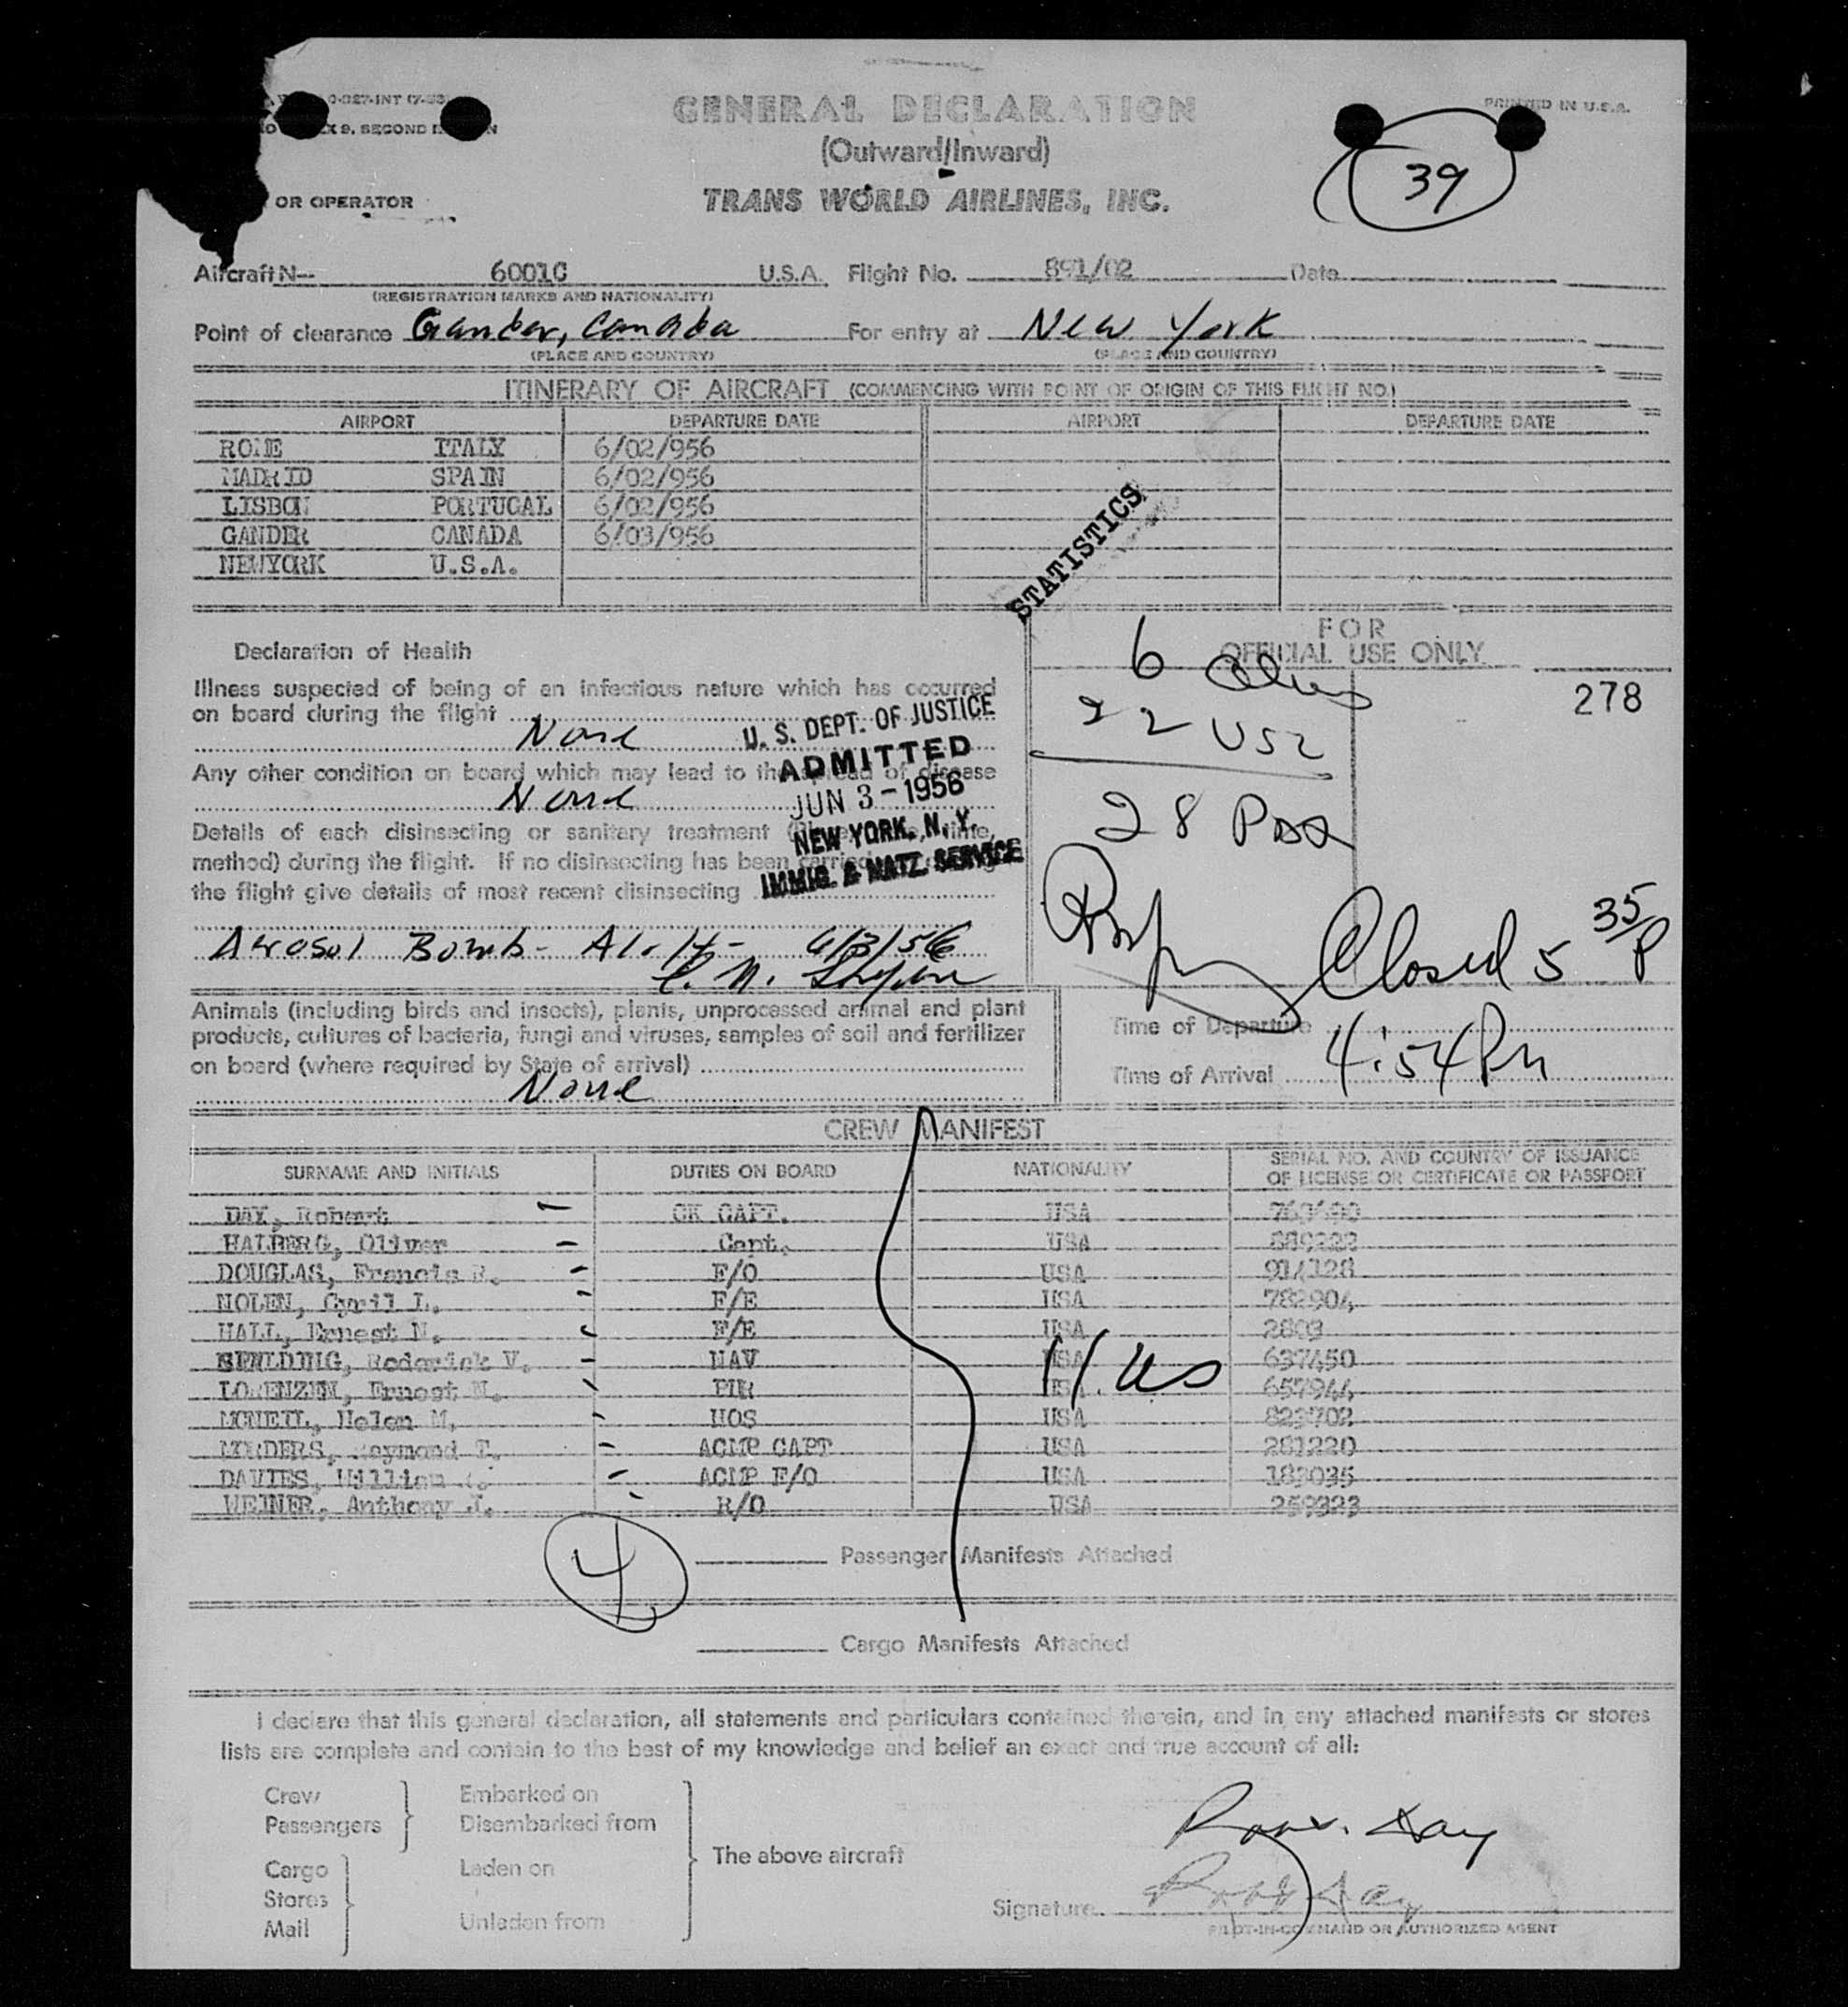 0-027-INT
PRINTED IN U.S.A.
9, SECOND
GENERAL DECLARATION
(Outward/Inward)
39
OR OPERATOR
TRANS WORLD AIRLINES, INC.
Aircraft N-- 6001C U.S.A. Flight No. 891/02 Date
(REGISTRATION MARKS AND NATIONALITY)
Point of clearance Gander, Canada For entry at New York
(PLACE AND COUNTRY) (PLACE AND COUNTRY)
ITINERARY OF AIRCRAFT (COMMENCING WITH POINT OF ORIGIN OF THIS FLIGHT NO.)
AIRPORT DEPARTURE DATE AIRPORT DEPARTURE DATE
ROME ITALY 6/02/956
MADRID SPAIN 6/02/956
LISBON PORTUGAL 6/02/956
GANDER CANADA 6/03/956
NEWYORK U.S.A.
STATISTICS
FOR
OFFICIAL USE ONLY
6 Aliens
278
22 USC
28 Pax
Closed 5 35/P
Declaration of Health
Illness suspected of being of an infectious nature which has occurred
on board during the flight
None
Any other condition on board which may lead to the spread of disease
None
U. S. DEPT. OF JUSTICE
ADMITTED
JUN 3 - 1956
NEW YORK, N. Y.
IMMIG. & NATZ. SERVICE
Details of each disinsecting or sanitary treatment time,
method) during the flight. If no disinsecting has been carried
the flight give details of most recent disinsecting
Aerosol Bomb- 6/3/56
Animals (including birds and insects), plants, unprocessed animal and plant
products, cultures of bacteria, fungi and viruses, samples of soil and fertilizer
on board (where required by State of arrival)
None
Time of Departure
Time of Arrival 4:54 Pm
CREW MANIFEST
SURNAME AND INITIALS DUTIES ON BOARD NATIONALITY SERIAL NO. AND COUNTRY OF ISSUANCE
OF LICENSE OR CERTIFICATE OR PASSPORT
DAY, Robert CK CAPT. USA
HALBERG, Oliver Capt. USA
DOUGLAS, Francis R. F/O USA 914128
NOLEN, Cyril L. F/E USA 782904
HALL, Ernest N. F/E USA 2803
Roderick V. NAV USA 637450
LORENZEN, Ernest N. PUR USA 657944
MCNEIL, Helen M. HOS USA 823702
Raymond T. ACMP CAPT USA 281220
DAVIES, William ACMP F/O USA 183035
WEINER, Anthony J. R/O USA 259323
11 US
4
Passenger Manifests Attached
Cargo Manifests Attached
I declare that this general declaration, all statements and particulars contained therein, and in any attached manifests or stores
lists are complete and contain to the best of my knowledge and belief an exact and true account of all:
Crew
Passengers
Embarked on
Disembarked from
Cargo
Stores
Mail
Laden on
Unladen from
The above aircraft
Robt. Day
Signature Robt Day
PILOT-IN-COMMAND OR AUTHORIZED AGENT